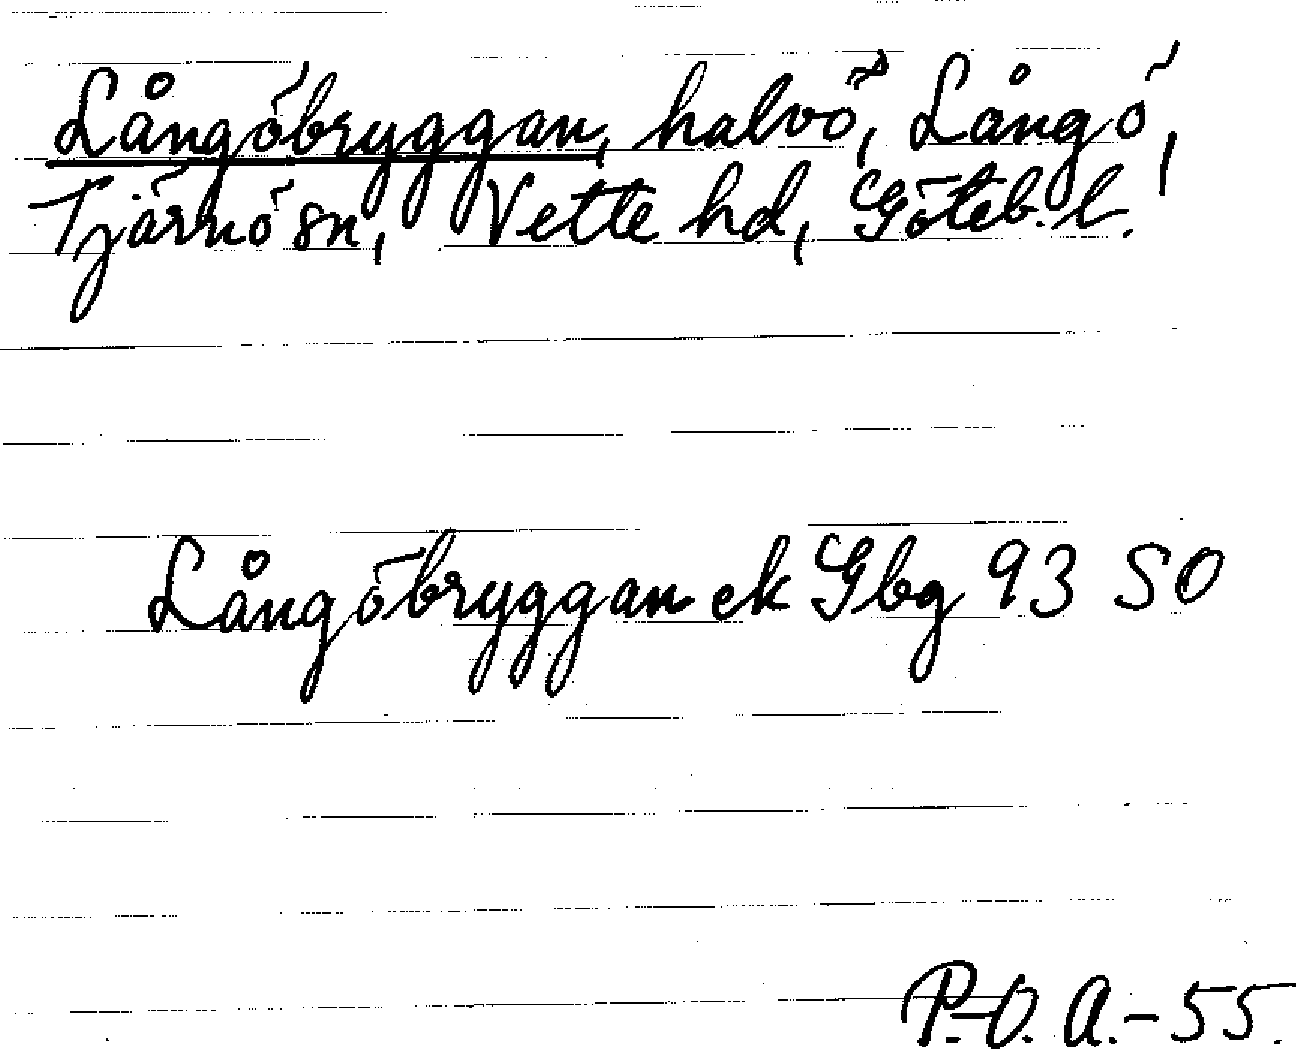 Långöbryggan, halvö, Långö,
Tjärnö sn, Vette hd, Göteb. l.
Långöbryggan ek Gbg 93 SO
P.-O. A. - 55.